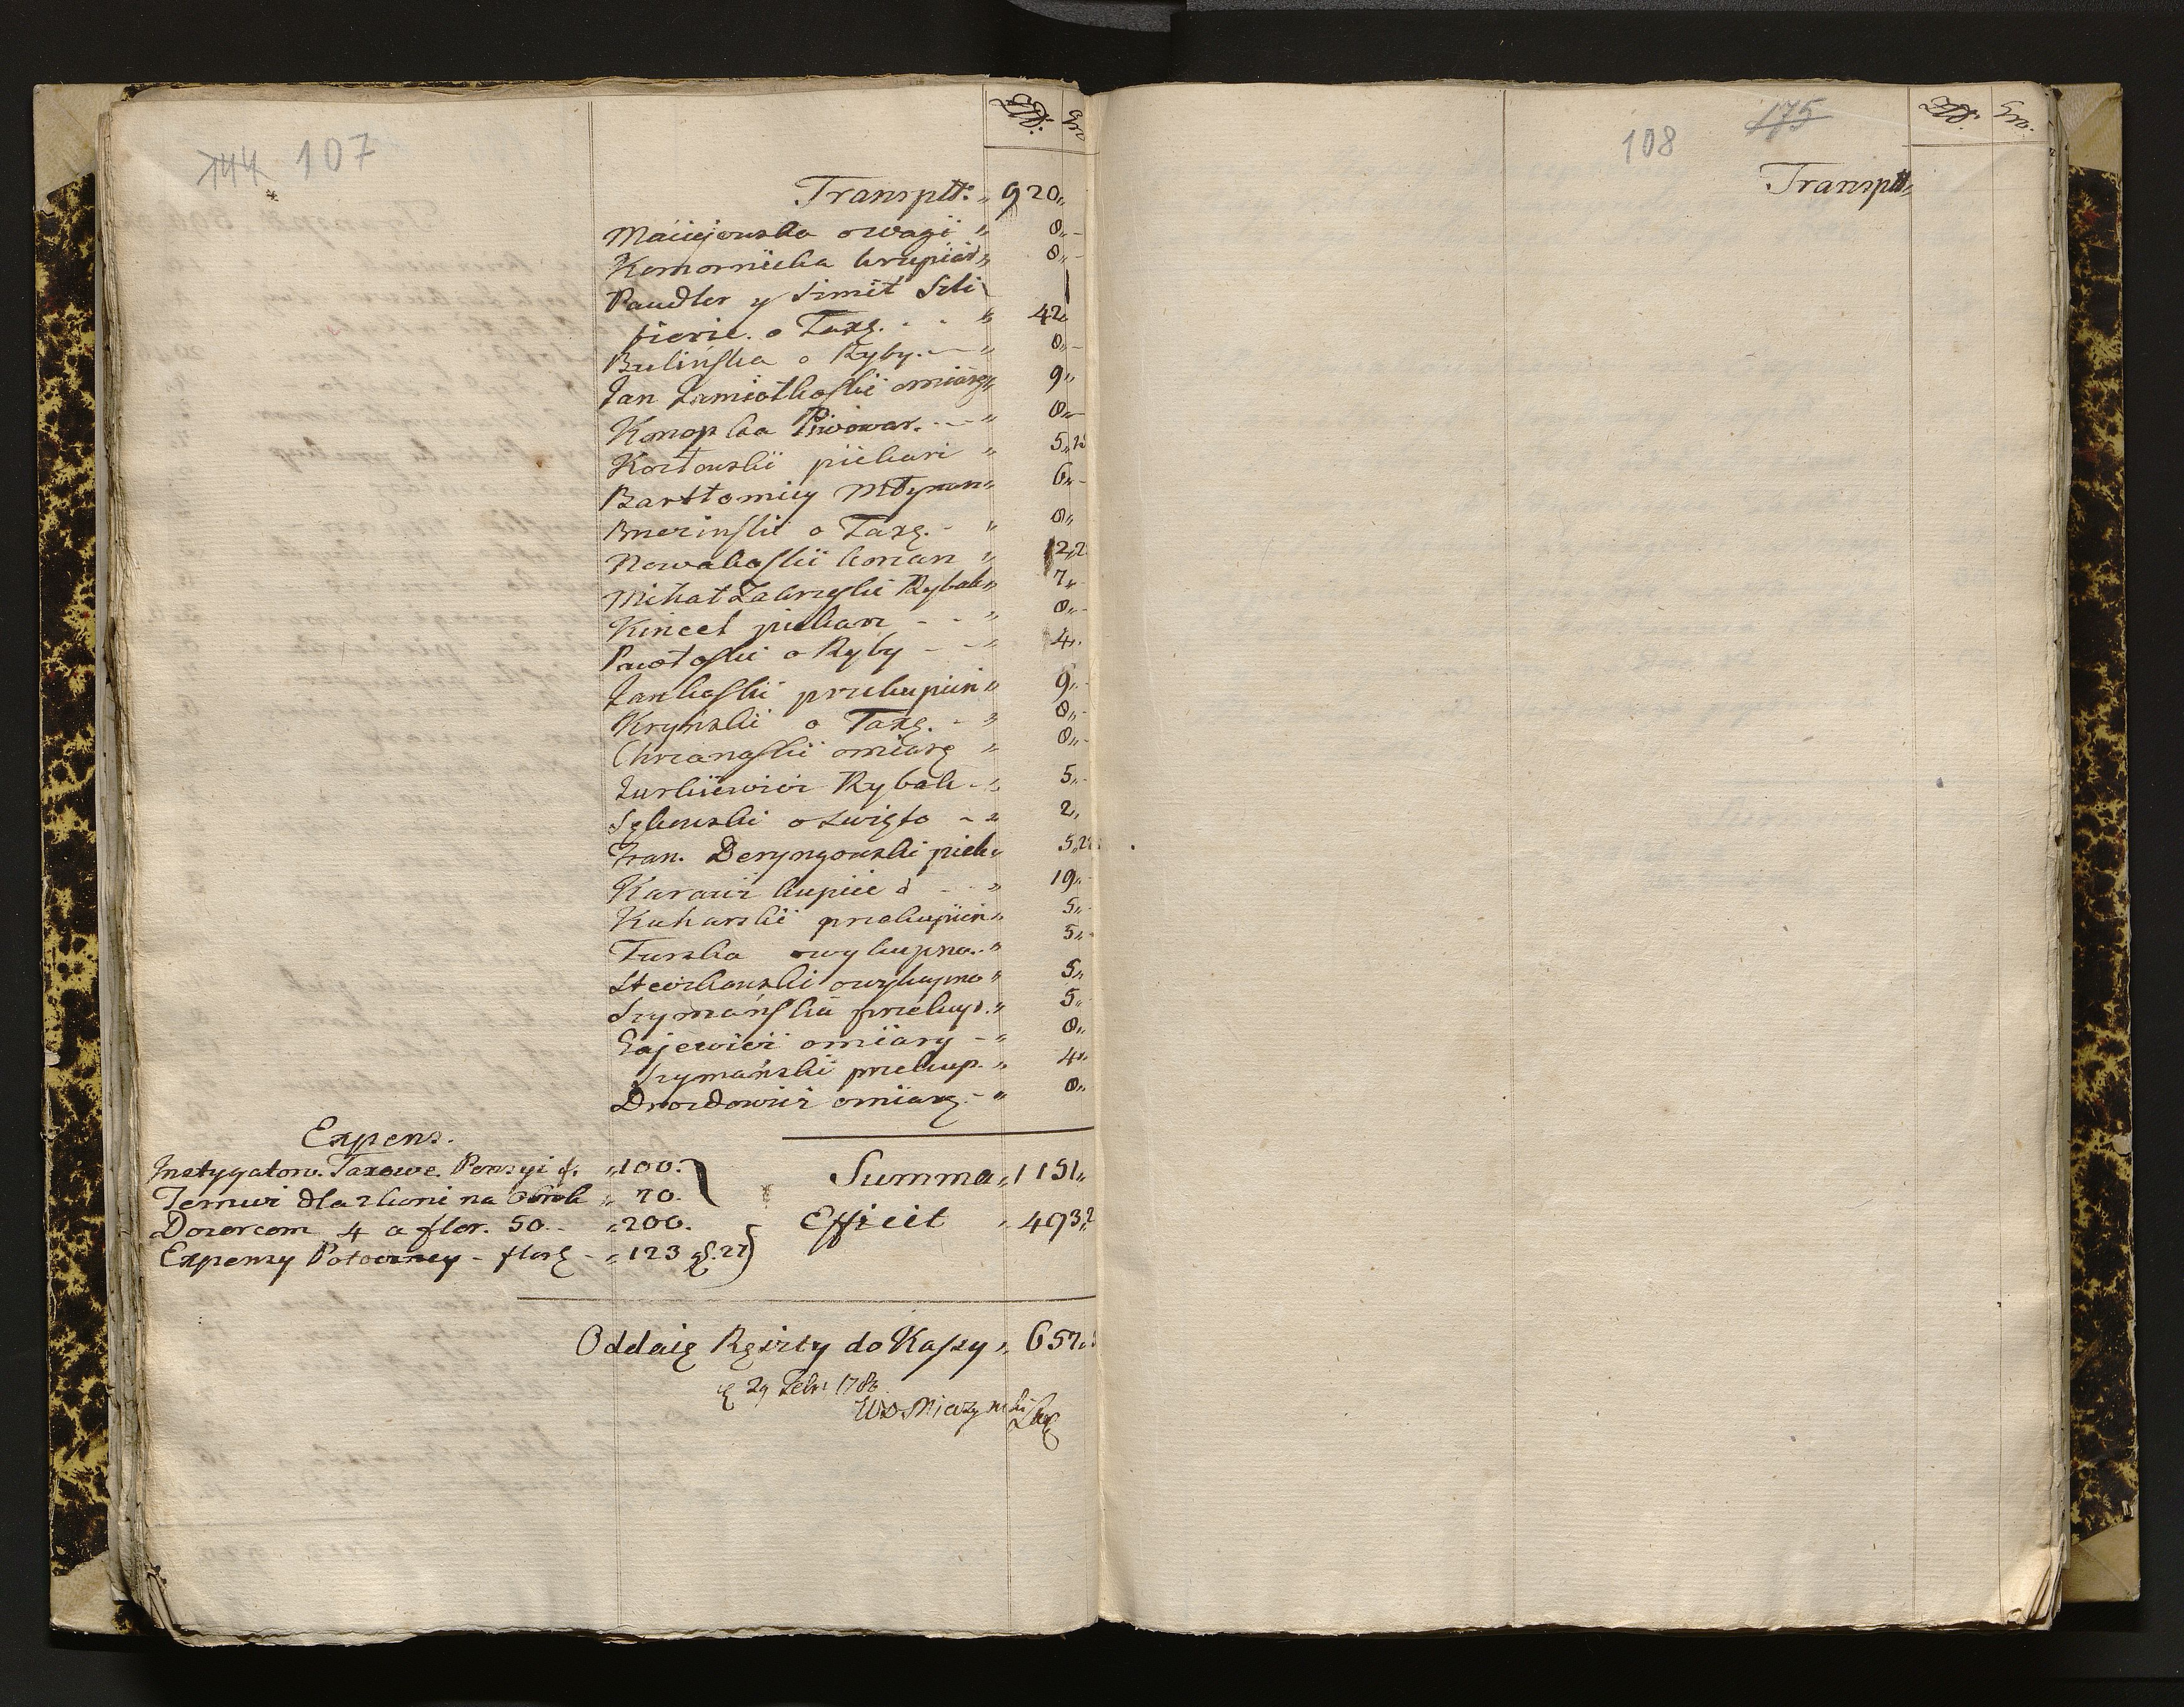 144 107
Złł: Gr
Transptt: „ 920„
Maciejowska o wagi „ 8„-
Komornicka krupiar „ 8„-
Paudler y Simit Szli
fierie. o Taxę. - - „ 42„
Bulińska o Ryby. — „ 8„-
Jan Zamiotkoski o miarę „ 9„
Konopka Piwowar. — „ 8„-
Kozłowskii piekari „ 5„
Barttomiey Młynar „ 6„-
Bnerinski o Taxę. - „ 8„
Nowakoskii „ 12„2
Michał Zakrzeski Rybak „ 7„
Kincel piekarz - - „ 8„-
Pawłoski o Ryby - - „ 4„
Jankoskii przekupien „ 9„-
Kryński o Taxę. - „ 8„-
Chrzanoskii o miarę „ 8„-
Jurkiewicz Rybak - „ 5„-
Sękowski o swięto - „ 2„
Fran. Deryngowski piek „ 5„2
Karawz kupiec - - „ 19„-
Kucharskii przekupien „ 5„-
Turska o wykupno. „ 5„-
o wykupno „ 5„
Szymańska przekup. „ 5„
Gajewicz o miary - „ 8„
Szymański przekup. „ 4„
Drozdowicz o miarę. - „ 8„
Expens.
Instygatorw. Taxowe. Pensyi f. „ 100.
Temuż dla na „ 70.
Dozorcom 4 a flor. 50.- „ 200.
Expensy Potoczney - flor - „ 123 g. 27
Summa „ 1151„
Efficit „ 493„2
Oddaię Reszty do Kassy „ 657„
29 Febr 1786

108 175
Złł. Gr.
Transptt„